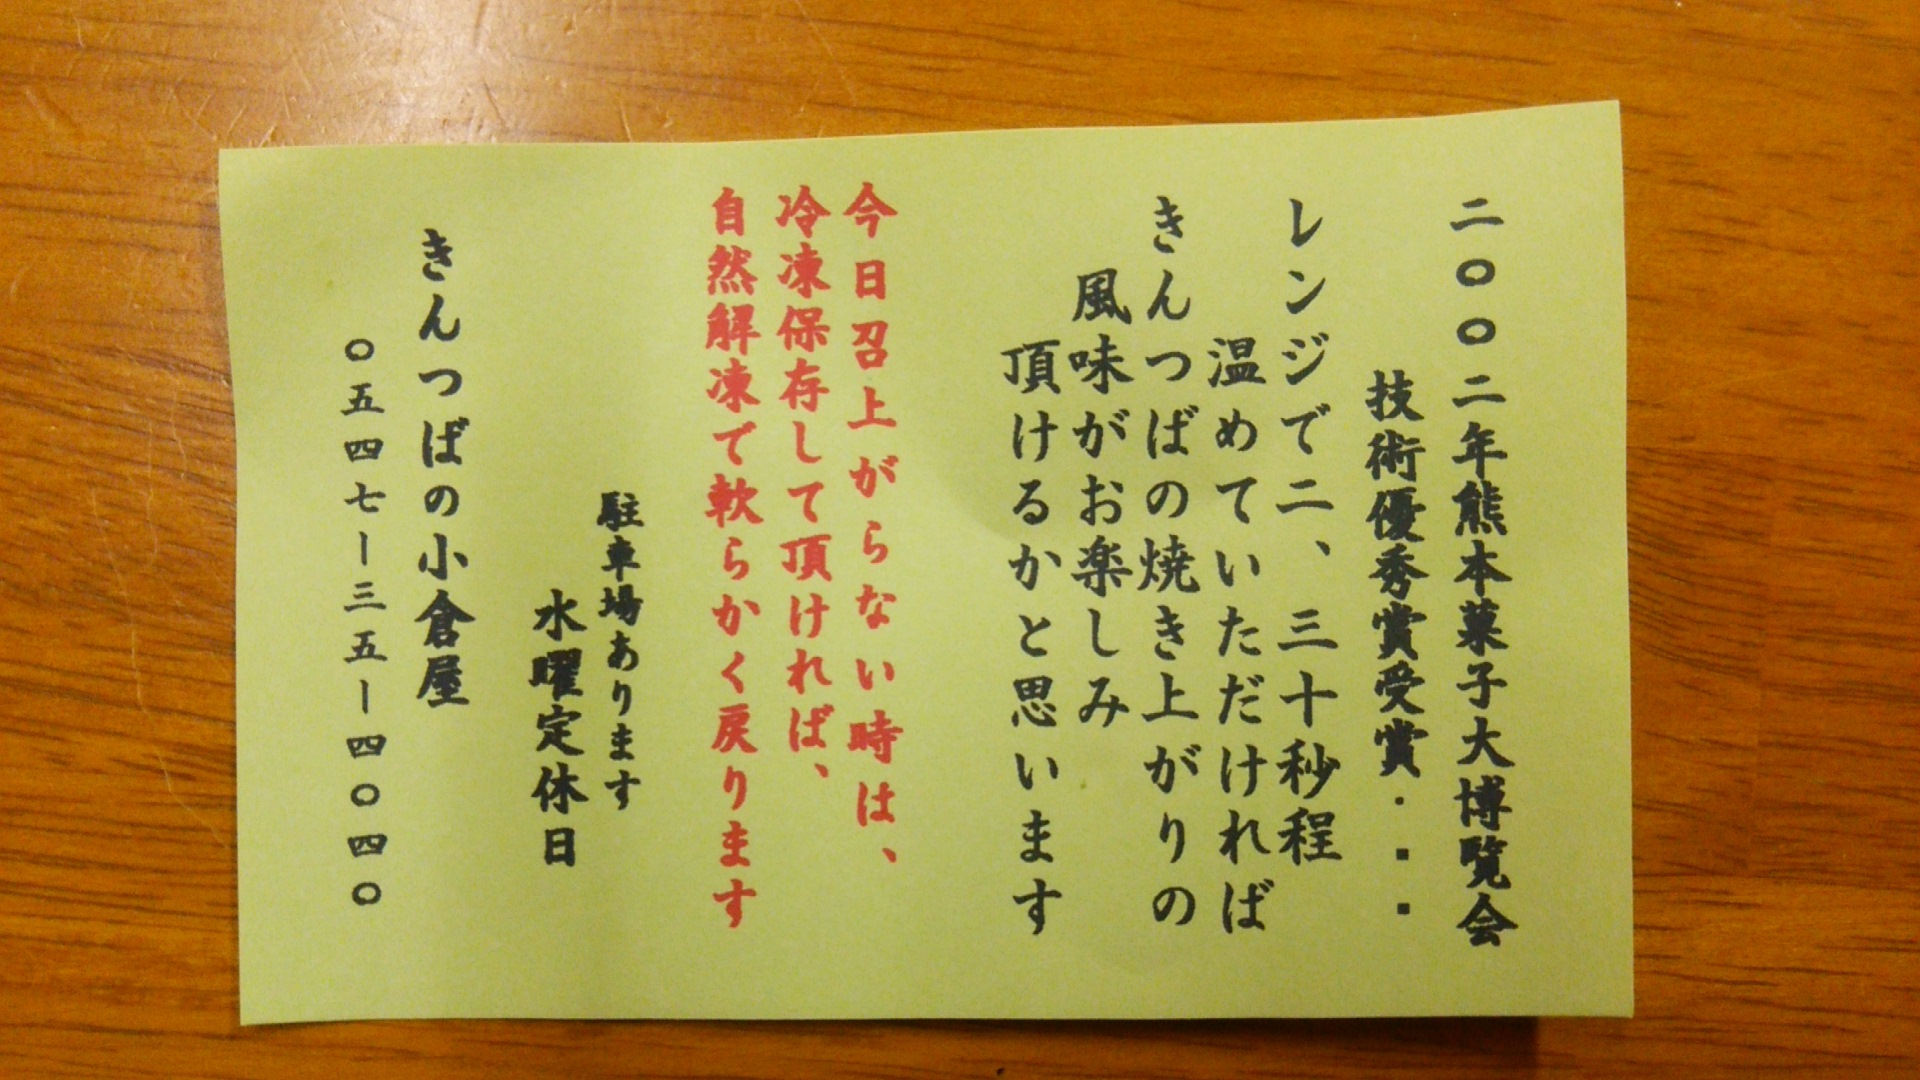 二〇〇二年熊本菓子大博覧会
技術優秀賞受賞・・・
レンジで二、三十秒程
温めていただければ
きんつばの焼き上がりの
風味がお楽しみ
頂けるかと思います
今日召上がらない時は、
冷凍保存して頂ければ、
自然解凍で軟らかく戻ります
駐車場あります
水曜定休日
きんつばの小倉屋
〇五四七ー三五ー四〇四〇